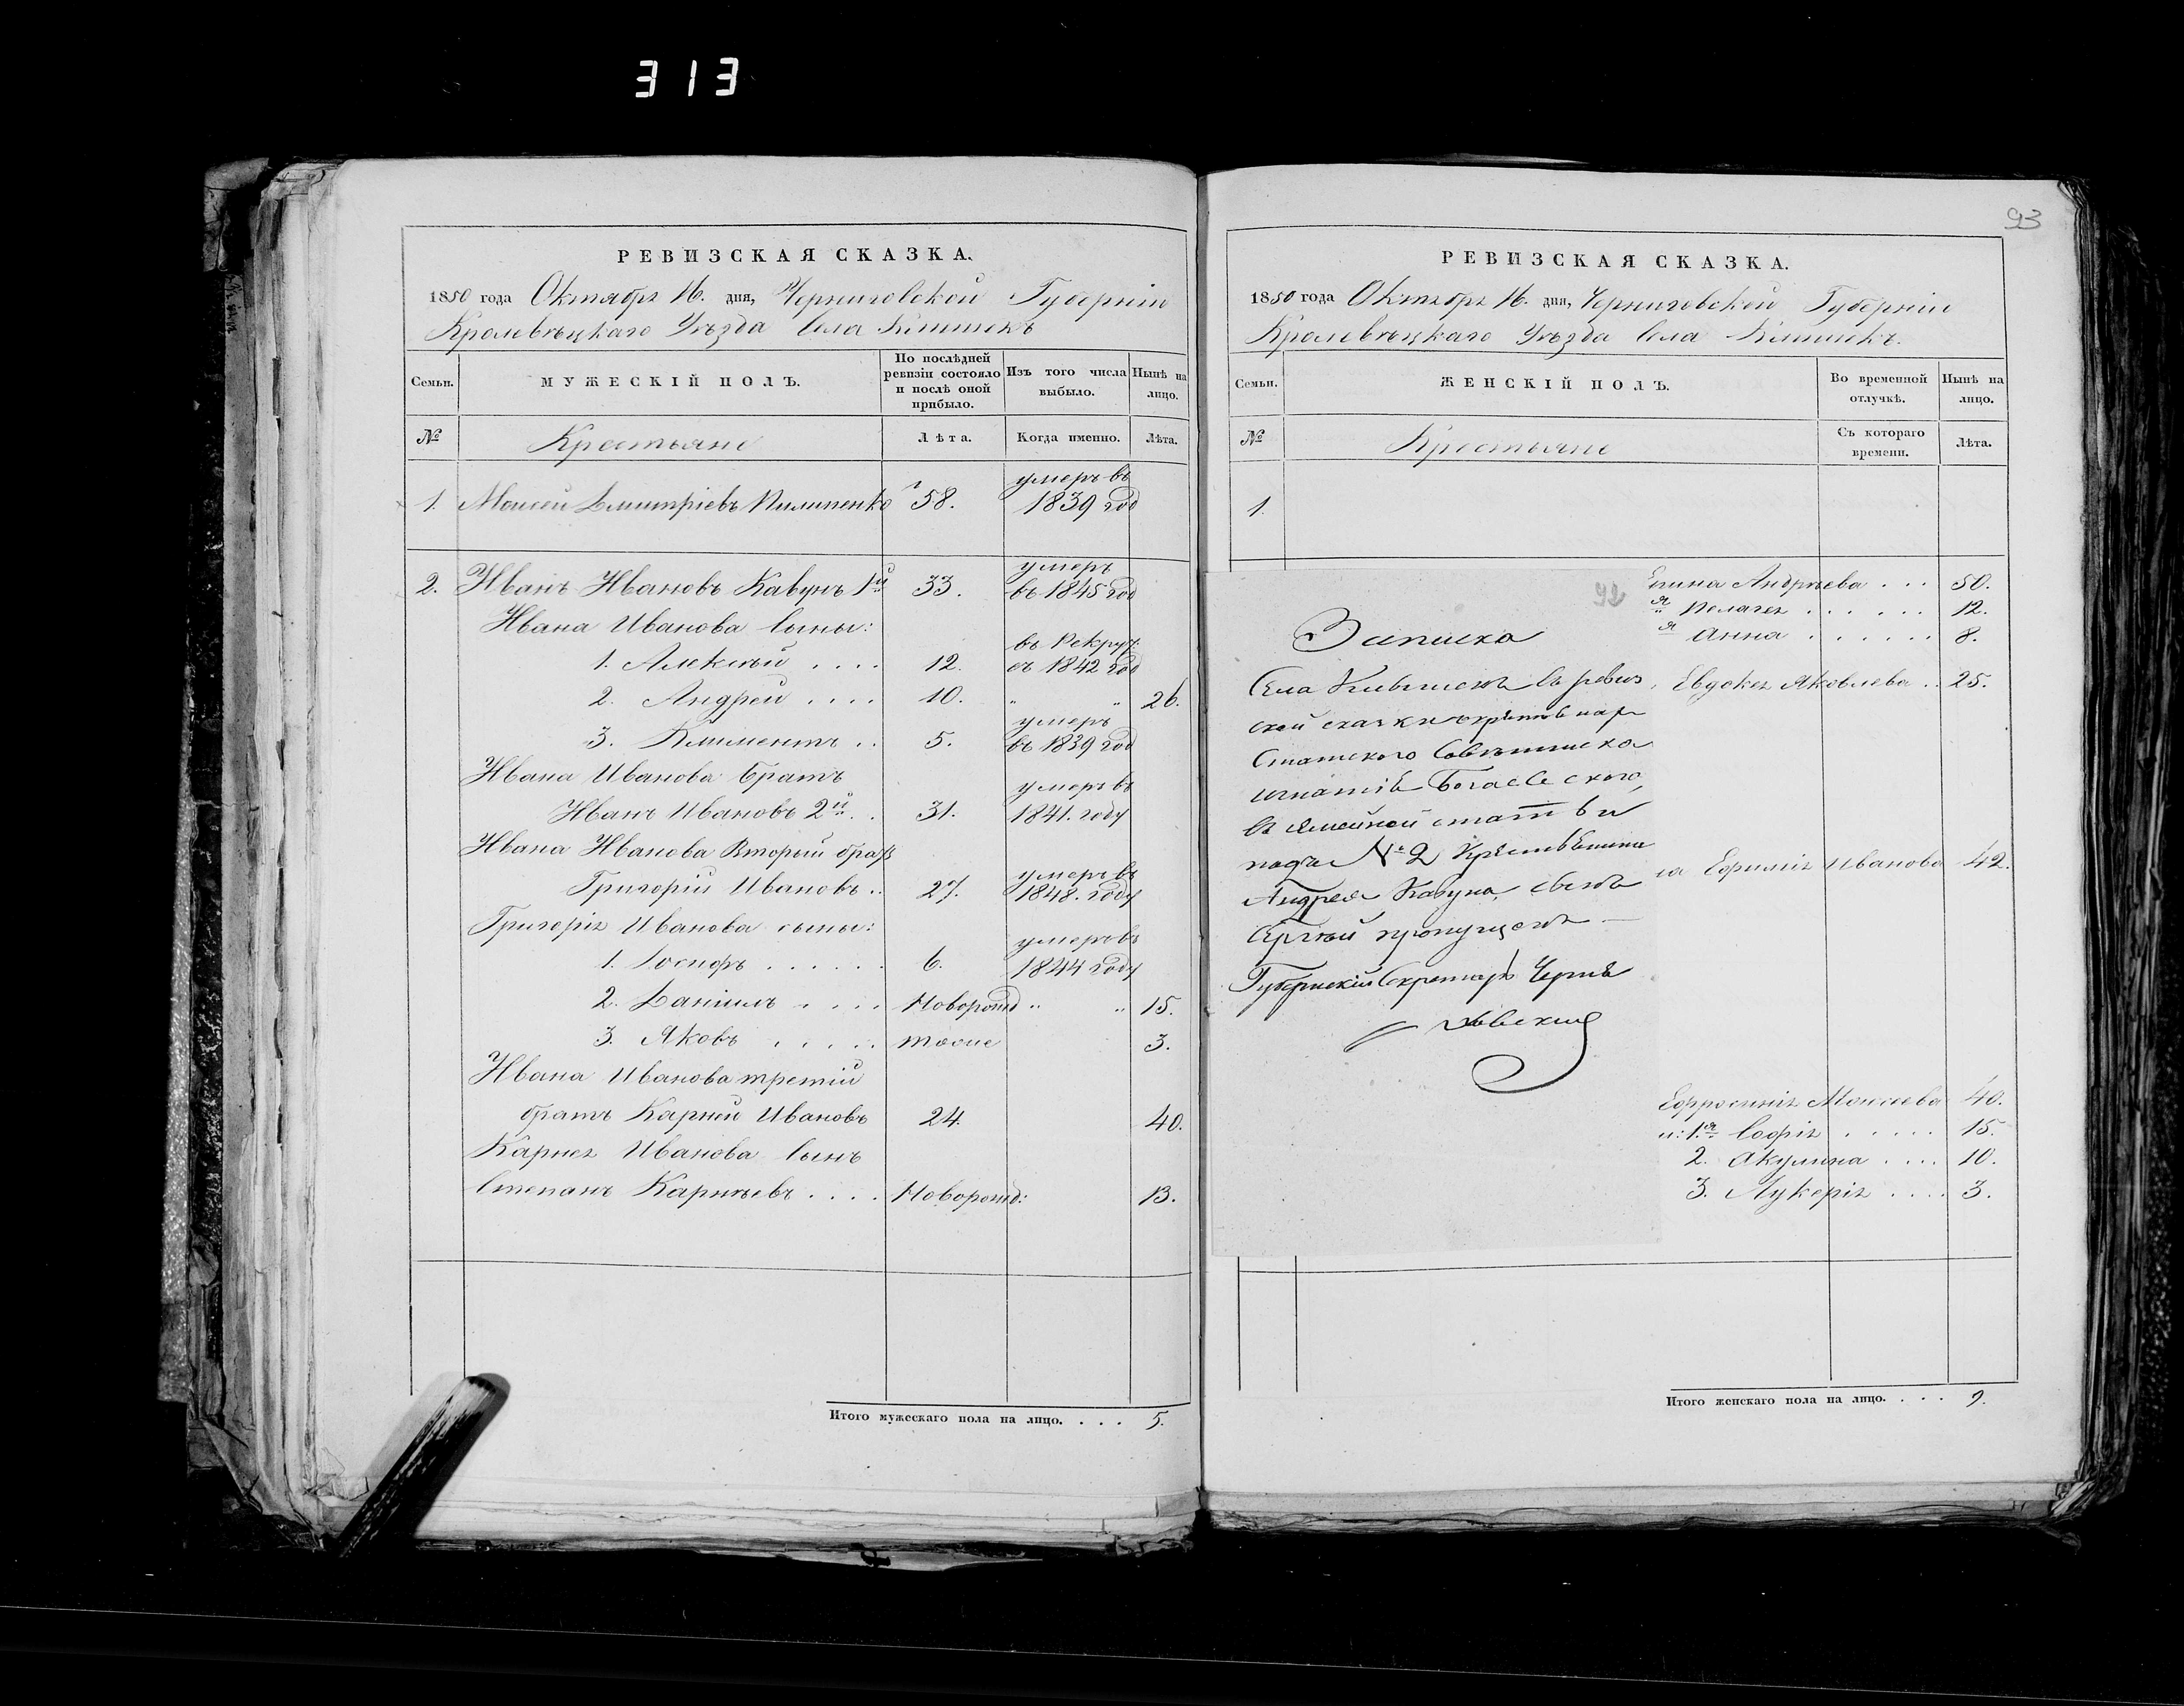 313
РЕВИЗСКАЯ СКАЗКА.
1850 года Октября 16. дня, Черниговской Губерніи
Кролевѣцкаго Уѣзда Села Клишекъ
Семьи.
МУЖЕСКІЙ ПОЛЪ.
По послѣдней ревизіи состояло и послѣ оной прибыло.
Изъ того числа выбыло.
Нынѣ на лицо.
№ Крестьяне Лѣта. Когда именно. Лѣта.
умеръ въ
1. Моисей Дмитріевъ Пилипенко 58. 1839 год
умеръ
2. Иванъ Ивановъ Кавунъ 1й 33. въ 1845 год
Ивана Иванова сыны:
въ Рекрут:
1. Алексѣй . . . . 12. съ 1842 год
2. Андрей . . . . 10. " " 26.
умеръ
3. Климентъ . . 5. въ 1839 год
Ивана Иванова братъ
умеръ въ
Иванъ Ивановъ 2й . . 31. 1841. году
Ивана Иванова Вторый братъ
умеръ въ
Григорій Ивановъ . . 27. 1848. году
Григорія Иванова сыны:
умеръ въ
1. Іосифъ . . . . . . 6. 1844 году
2. Даніилъ . . . . Новорожд " " 15.
3. Яковъ . . . . . тоже 3.
Ивана Иванова третій
братъ Карпей Ивановъ 24. 40.
Карпея Иванова сынъ
Степанъ Карпѣевъ . . . . Новорожд: 13.
Итого мужескаго пола на лицо. . . . 5.
93
РЕВИЗСКАЯ СКАЗКА.
1850 года Октября 16. дня, Черниговской Губерніи
Кролевѣцкаго Уѣзда Села Клишекъ.
Семьи.
ЖЕНСКІЙ ПОЛЪ.
Во временной отлучкѣ.
Нынѣ на лицо.
№ Крестьяне Съ котораго времени. Лѣта.
1.
Андрѣева . . . 50.
я Пелагея . . . . . . 12.
я Анна . . . . . . 8.
Евдокея Яковлева . . 25.
на Ефимія Иванова 42.
Ефросинія Моисеева 40.
1.я Софія . . . . . 15.
2. Акулина . . . . 10.
3. Лукерія . . . . 3.
92
Записка
Села Клишекъ въ ревиз
ской сказки
Статского Совѣтника
Игнатія
въ Семейной
подъ № 2
Андрея Кавуна, сынъ
Сергѣй пропущенъ
Губернскій Секретарь
Итого женскаго пола на лицо. . . . 9.